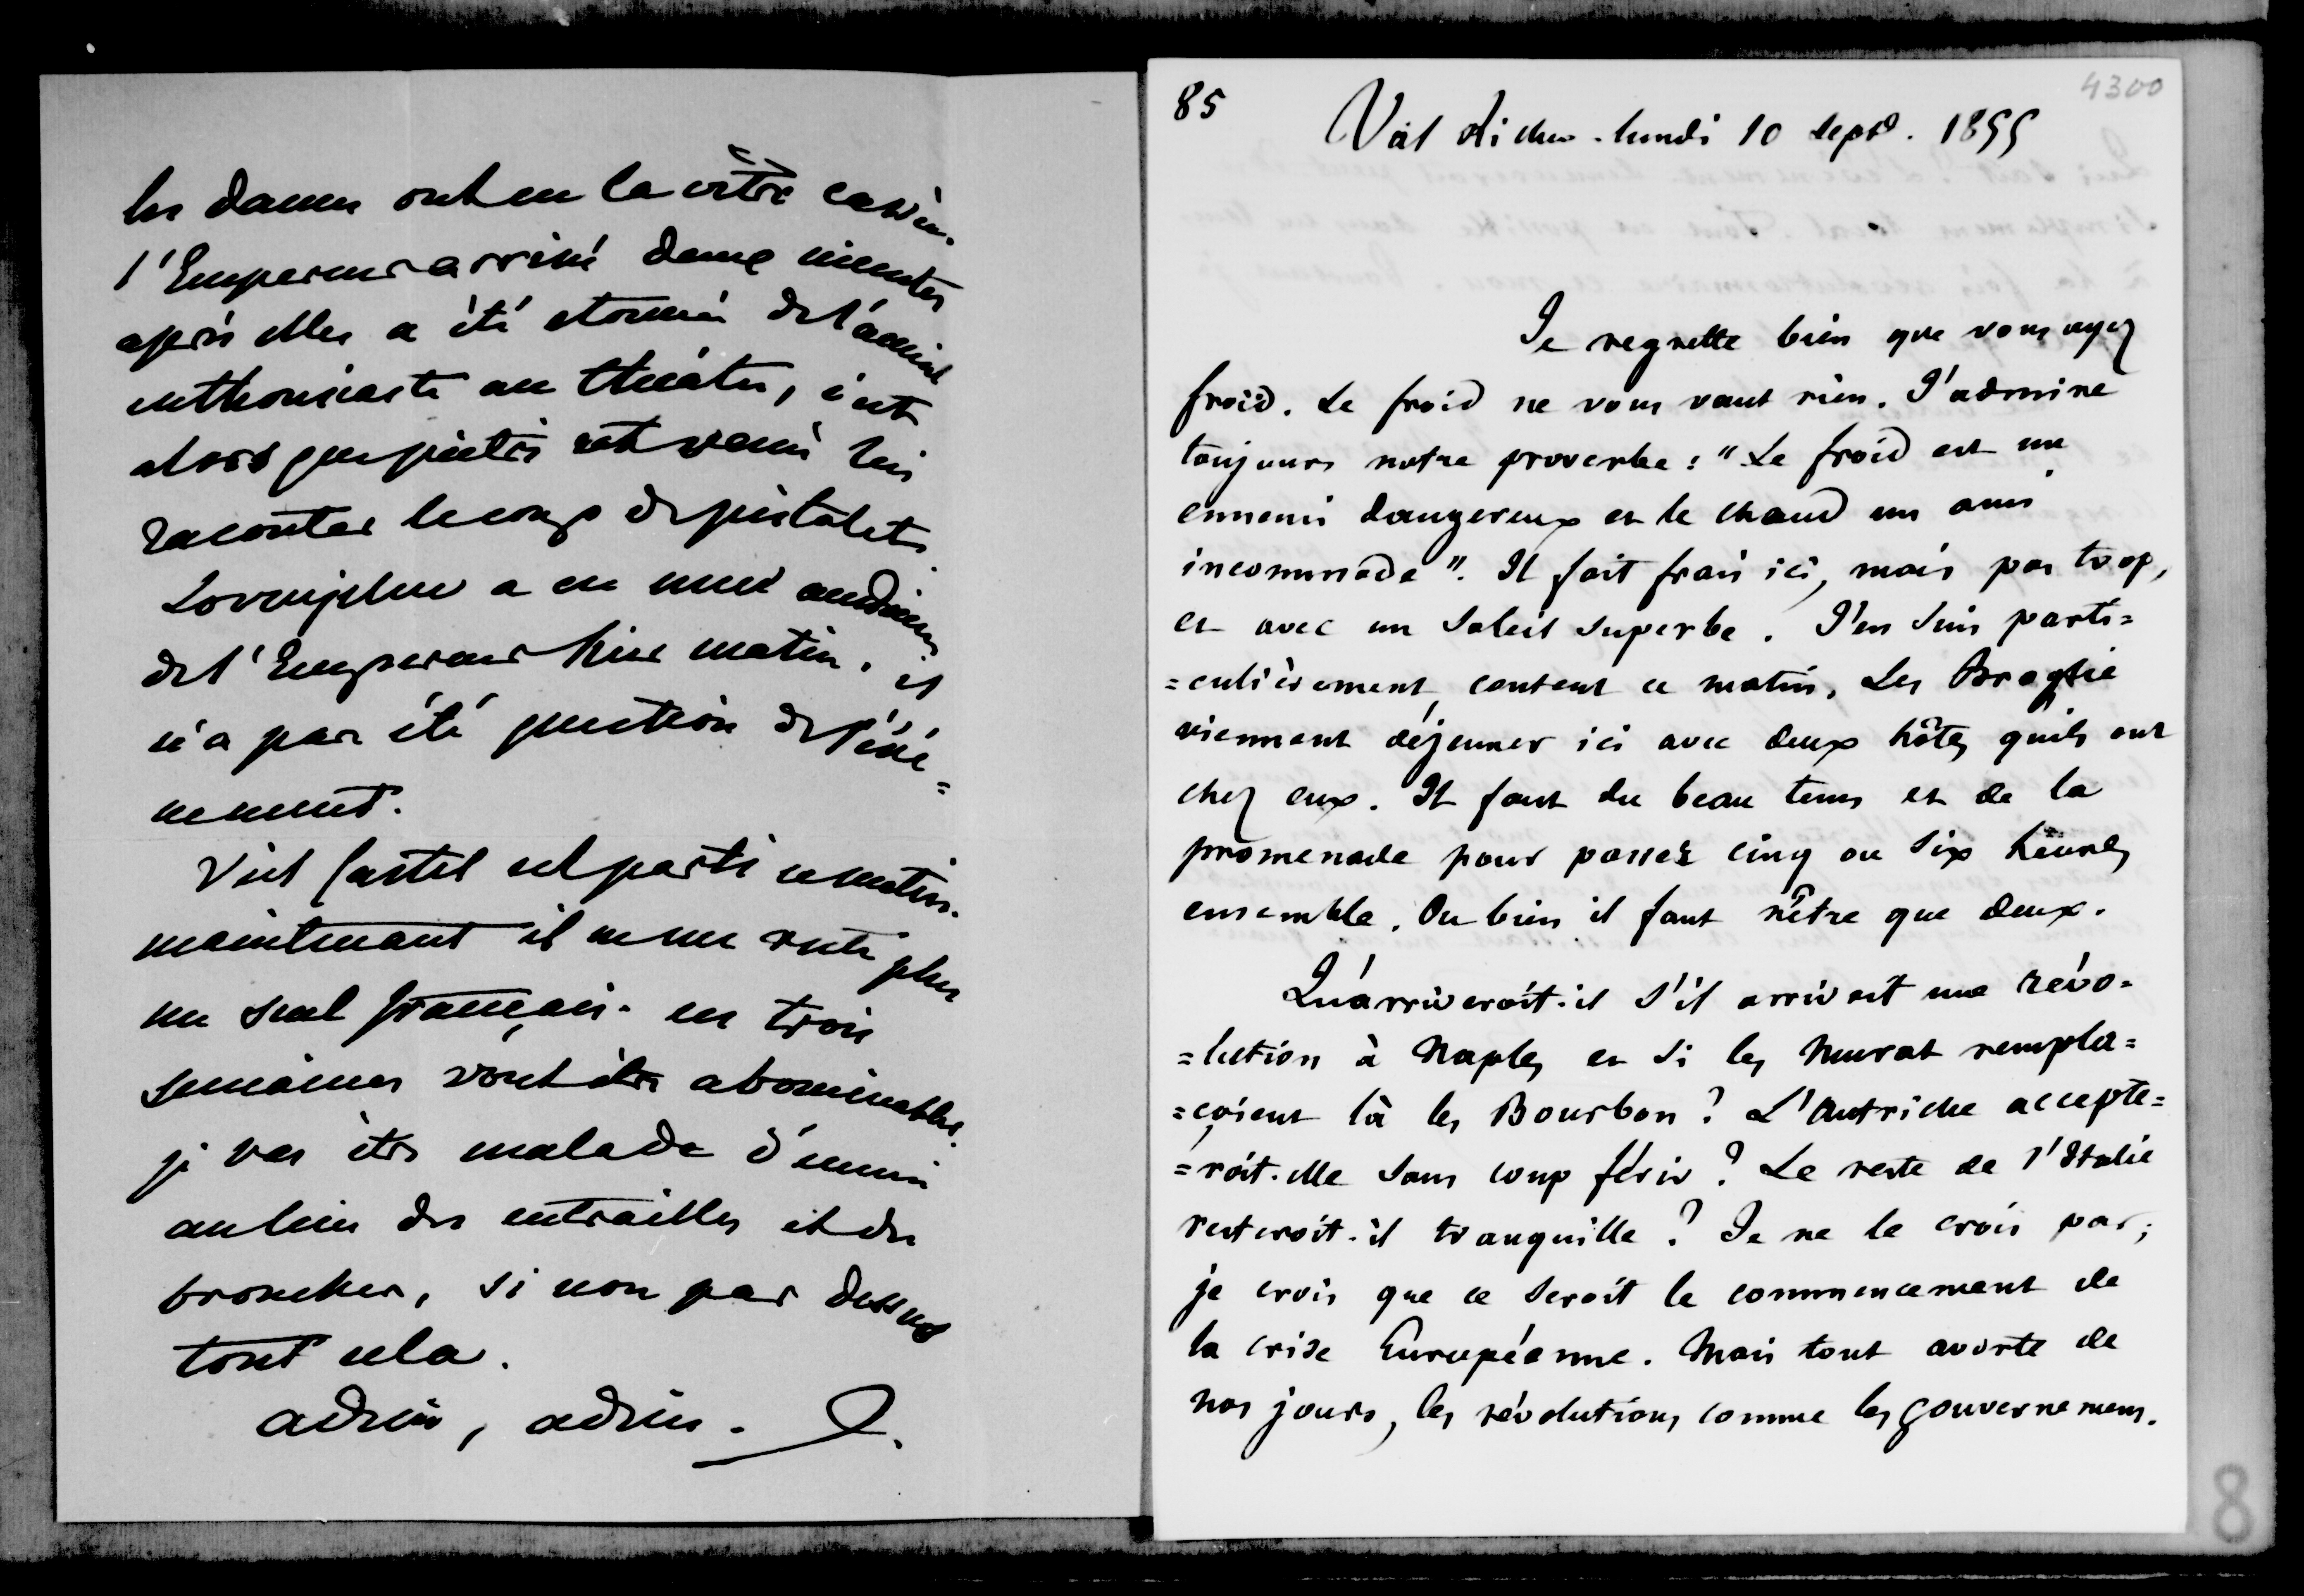 les dames ont eu la vitre cassée.
l'Empereur arrivé deux minutes
après elles a été etonné de l'accueil
enthousiaste au théatre, c'est
alors que piétri est venu lui
raconter le coup de pistolet.
a eu une audience
de l'Empereur hier matin. il
n'a pas été question de l'évé=
nement.
Viel Castel est parti ce matin.
maintenant il ne me reste plus
un seul français. ces trois
semaines vont être abominables.
je vas être malade d'ennui
au lieu des entrailles et des
bronches, si non par dessus
tout cela.
adieu, adieu.
85
4300
Val Richer - lundi 10 Sept. 1855
Je regrette bien que vous ayez
froid. Le froid ne vous vaut rien. J'admire
toujours notre proverbe : "Le froid est un
ennemi dangereux et le chaud un ami
incommode". Il fait frais ici, mais pas trop,
et avec un Soleil Superbe. J'en Suis parti=
=culièrement content ce matin. Les Broglie
viennent déjeuner ici avec deux hôtes qu'ils ont
chez eux. Il faut du beau tems et de la
promenade pour passer cinq ou Six heures
ensemble. Ou bien il faut n'être que deux.
Qu'arriveroit-il S'il arrivoit une révo=
=lution à Naples et Si les Murat rempla=
=çoient là les Bourbon ? L'Autriche accepte=
=roit-elle Sans coup férir ? Le reste de l'Italie
resteroit-il tranquille ? Je ne le crois pas ;
je crois que ce Seroit le commencement de
la crise Européenne. Mais tout avorte de
nos jours, les révolutions comme les gouvernemens.
8